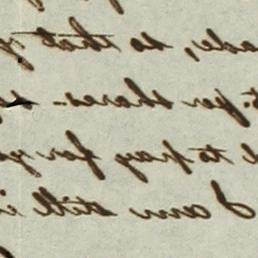 ade, so that y
t. per shares -
t to pay for yo
I am still i